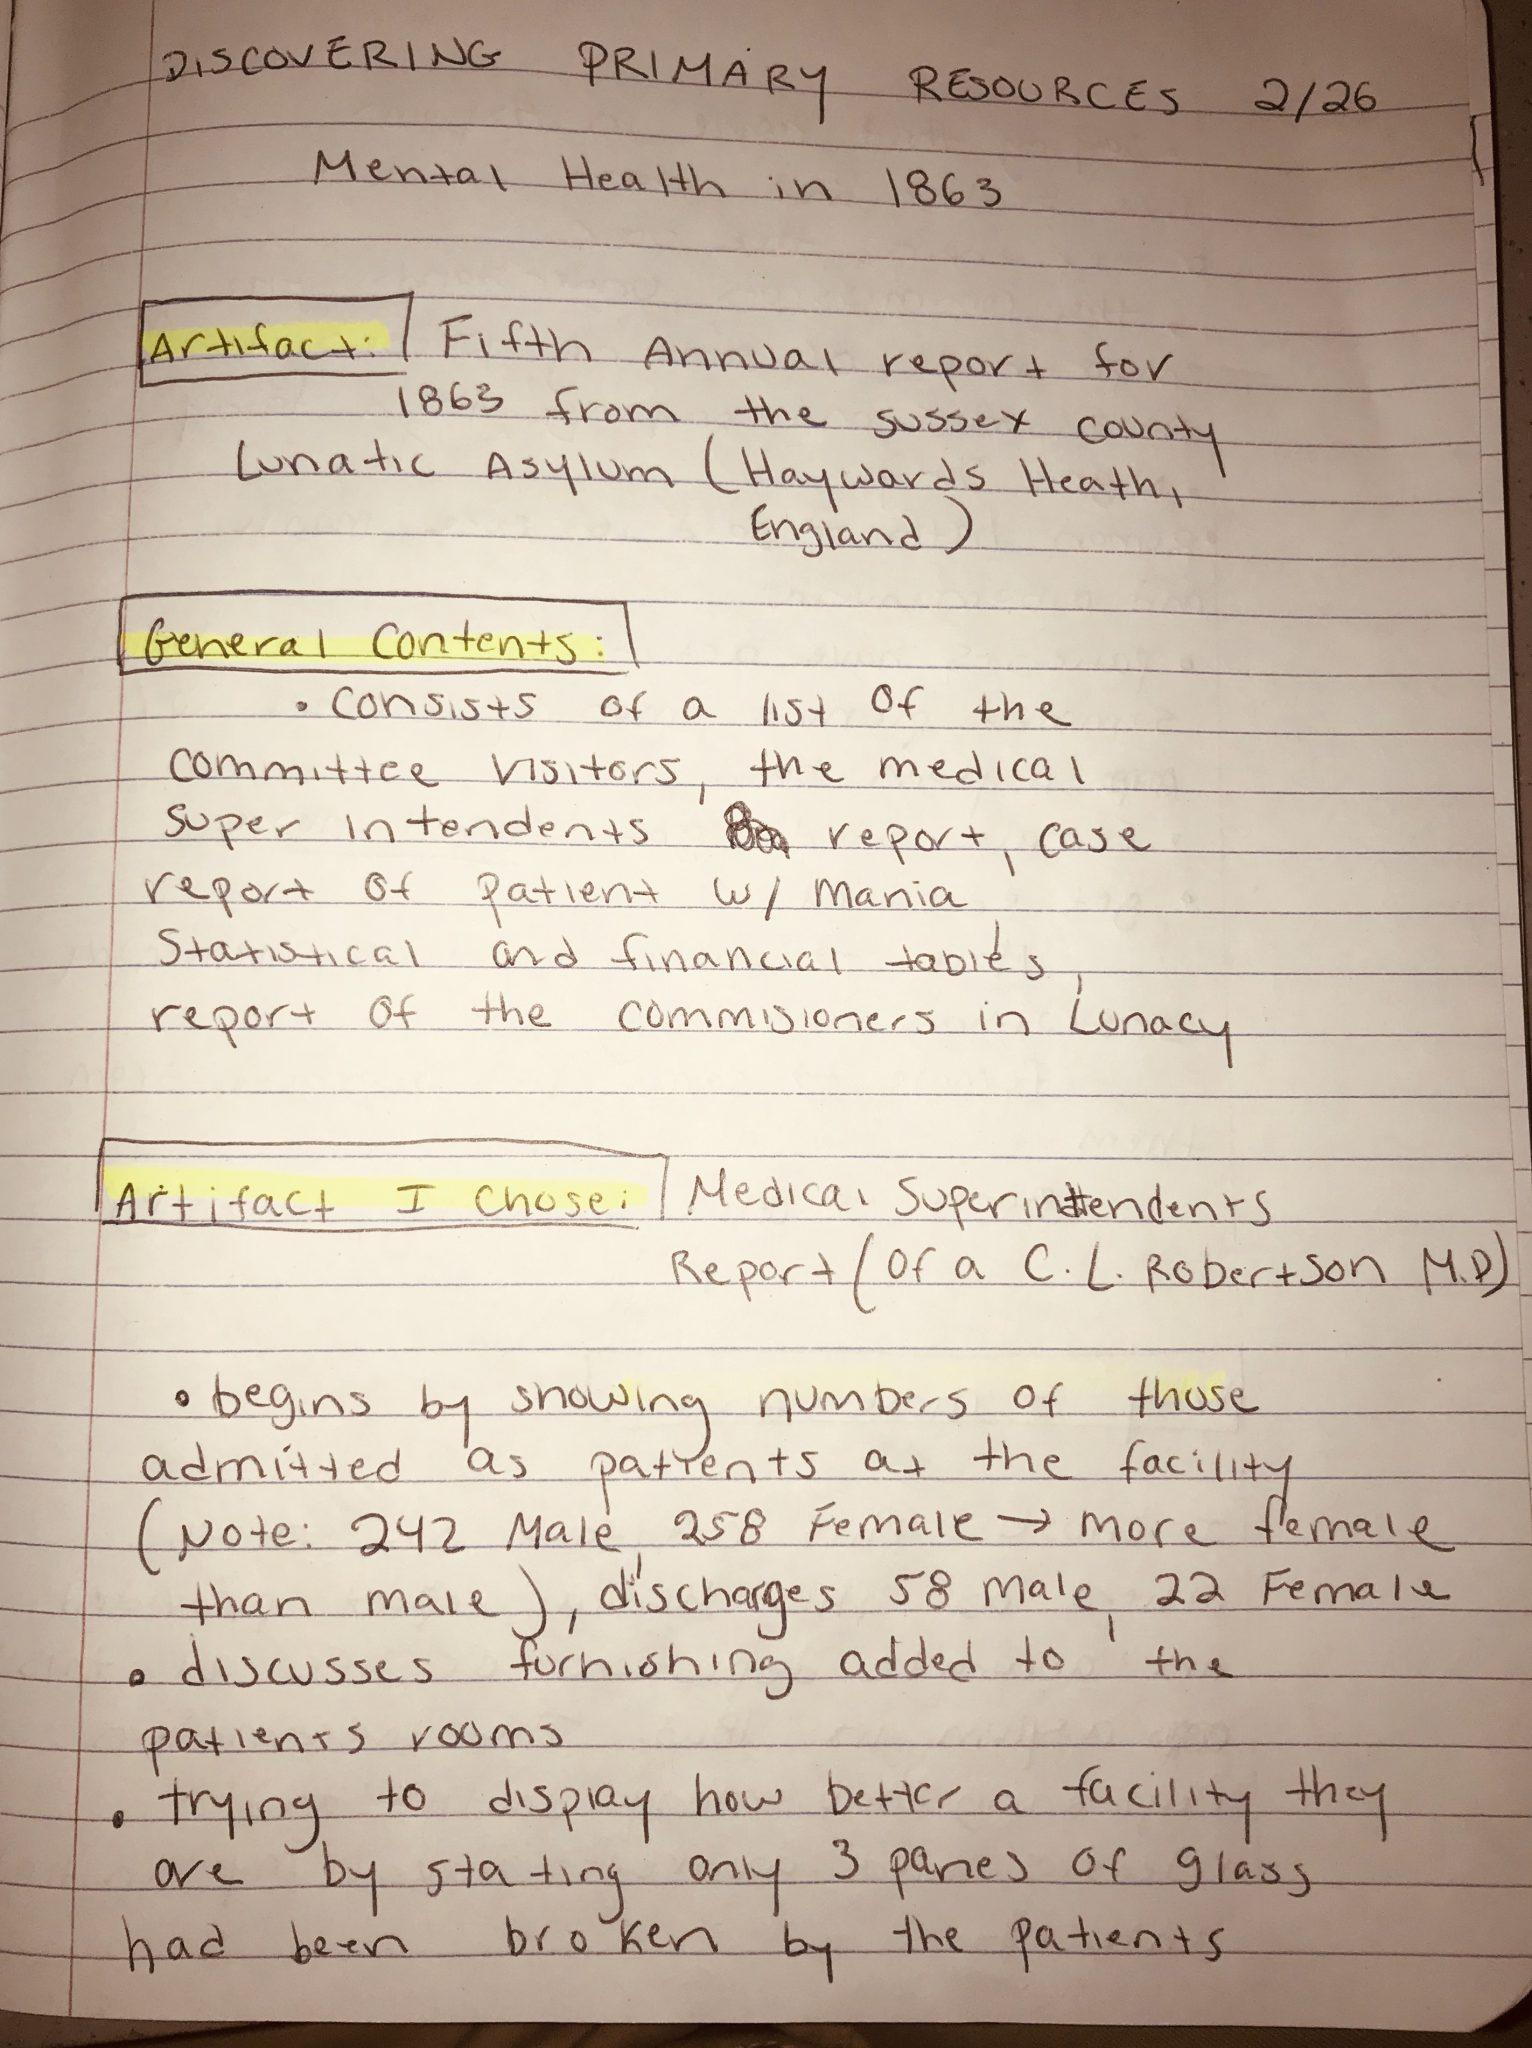 DISCOVERING PRIMARY RESOURCES 2/26
Mental Health in 1863
Artifact: Fifth Annual report for
1863 from the sussex county
Lunatic Asylum (Haywards Heath,
England)
General Contents:
• consists of a list of the
committee visitors, the medical
super intendents report, case
report of patient w/ mania,
statistical and financial tables,
report of the commisioners in Lunacy
Artifact I Chose: Medical Superintendents
Report (of a C.L. Robertson M.D)
• begins by showing numbers of those
admitted as patients at the facility
(Note: 242 Male, 258 Female → more female
than male), discharges 58 male, 22 Female
• discusses furnishing added to the
patients rooms
• trying to display how better a facility they
are by stating only 3 panes of glass
had been broken by the patients